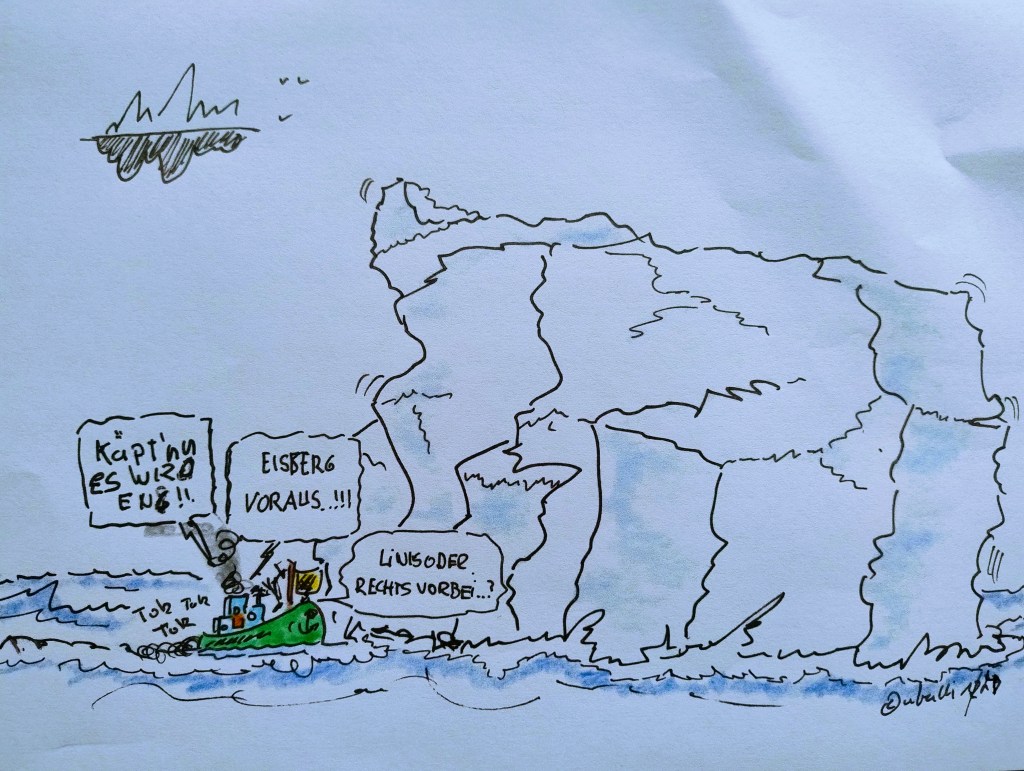 KÄPT'NN
ES WIRD
ENG!!
EISBERG
VORAUS..!!!
LINKS ODER
RECHTS VORBEI..?
TUK TUK
TUK
©